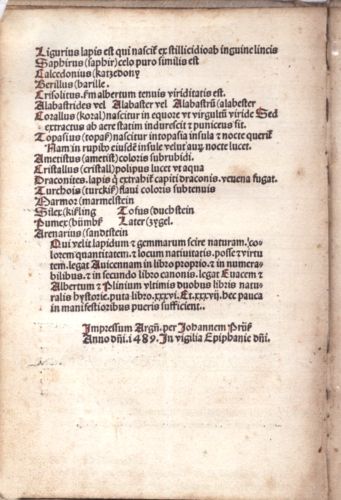 Ligurius lapis est qui nascit' ex stillicidio ab inguine lincis
Saphirus (saphir) celo puro similis est
Calcedonius (katzedony
Berillus (barille.
Crisolitus. scďm albertum tenuis viriditatis est.
Alabastrides vel Alabaster vel Alabastrū (alabester
Corallus (koral) nascitur in equore vt virgultū viride Sed
extractus ab aere statim indurescit et puniceus fit.
Topasius (topas) nascitur in topasia insula et nocte querit'
Nam in rupib' eiusdē insule velut auȝ nocte lucet.
Ametistus (ametist) coloris subrubidi.
Cristallus (cristall) polipus lucet vt aqua
Draconites. lapis q̄ extrahit' capiti draconis. venena fugat.
Turchois (turckis) flaui coloris subtenuis
Marmoz (marmelstein
Silex (kisling Tofus (duchstein
Pumex (bimß Later (zygel.
Arenarius (sandtstein
Qui velit lapidum et gemmarum scire naturam. colorem
quantitatem. et locum natiuitatis. posse et virtutem.
legat Auicennam in libro proprio. et in numerabilibus.
et in secundo libro canonis. legat Euacem et
Albertum et Plinium vltimis duobus libris naturalis
hystorie. puta libro. xxxvi. Et. xxxvij. hec pauca
in manifestioribus pueris sufficient.
Impressum Argñ. per Johannem Prüß
Anno dñi. 1489. In vigilia Epiphanie dñi.